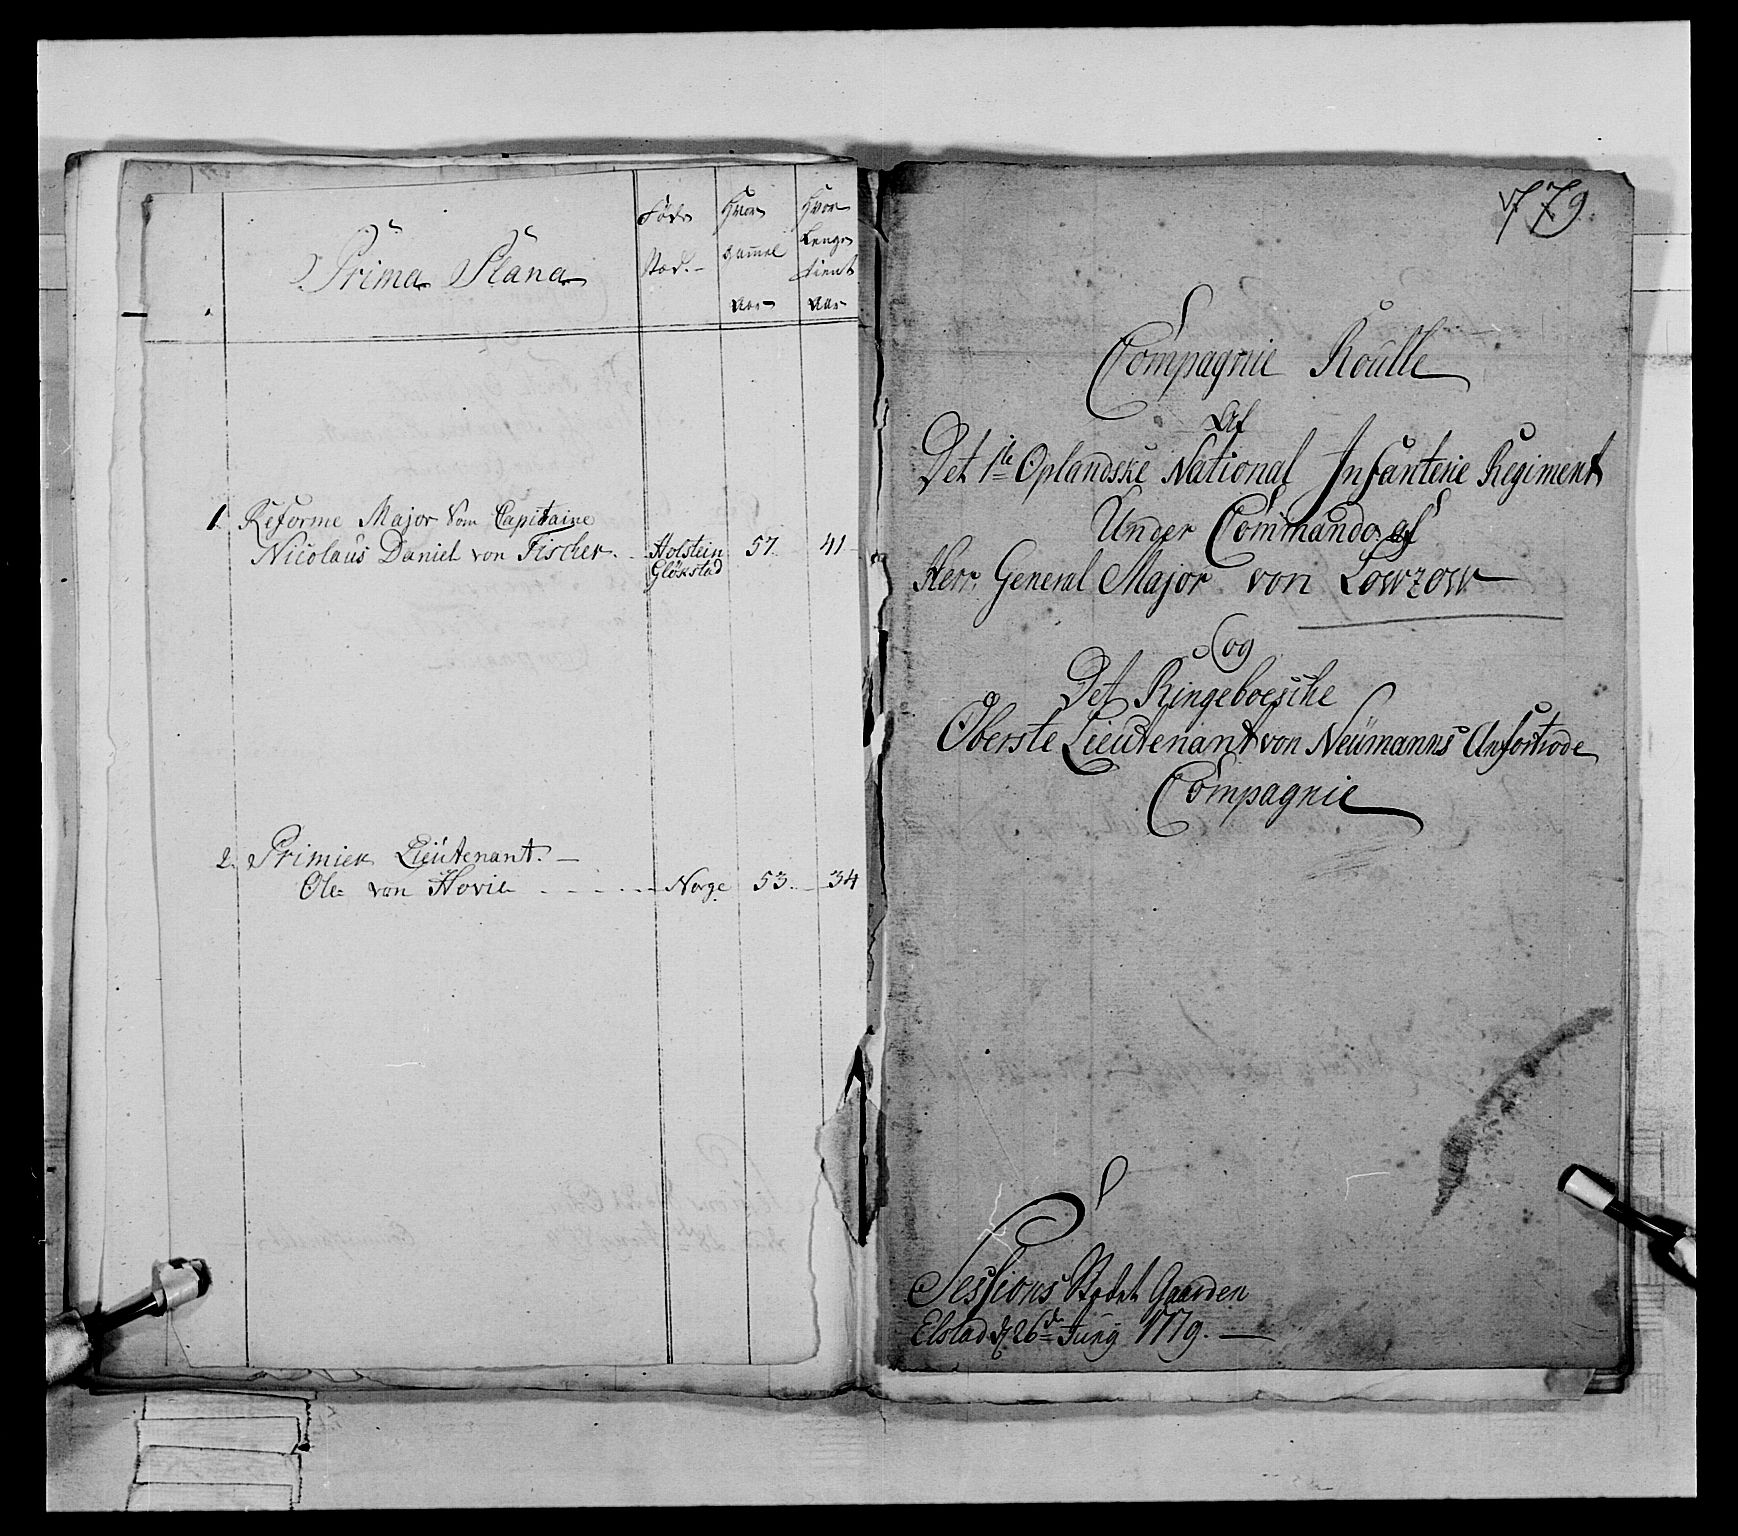 Prima Plana
Føde
Stad.
Hvor
gammel
Aar
Hvor
Lenge
tient
Aar
1. Reforme Major Som Capitaine
Nicolaus Daniel von Fischer. Holstein 57. 41
Glükstad
2. Primier Lieutenant.
Ole von Hovie Norge 53. 34
1779.
Compagnie Roulle
Af
Det 1te Oplandske National Infanterie Regiment
Under Commando af
Herr General Major von Lowzow
og
Det Ringeboesche
Oberste Lieutenant von Neümanns Anfortrode
Compagnie
Sessions Stædet Gaarden
Elstad d. 26de Juny 1779.